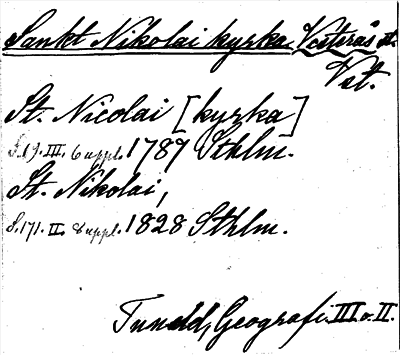 Sankt Nikolai kyrka. Vesterås st.
Vst.
St. Nicolai [kyrka]
S. 19. III. 6 uppl. 1787 Sthlm.
St. Nikolai,
S. 171. II. 8 uppl. 1828 Sthlm.
Tuneld, Geografi. III o. II.